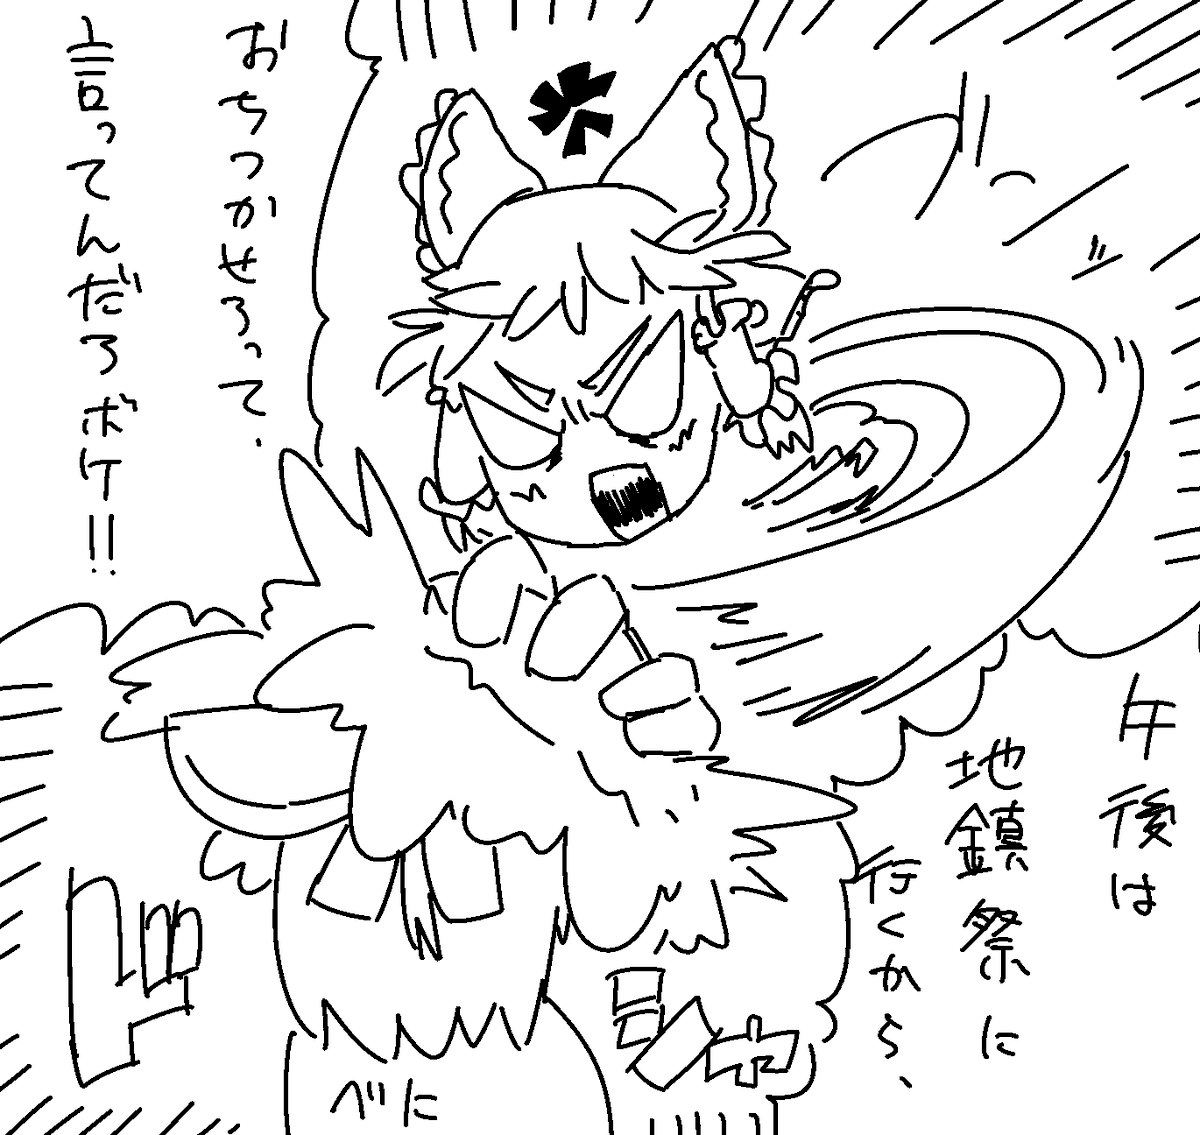 午後は
地鎮祭に
行くから、
おちつかせろって、
言ってんだろボケ!!
べに